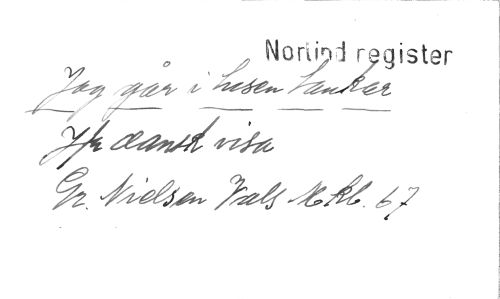 Nortind register
Jag går i tusen tankar
Jfr dansk visa
Gr. Nielsen Vals Mkb. 67